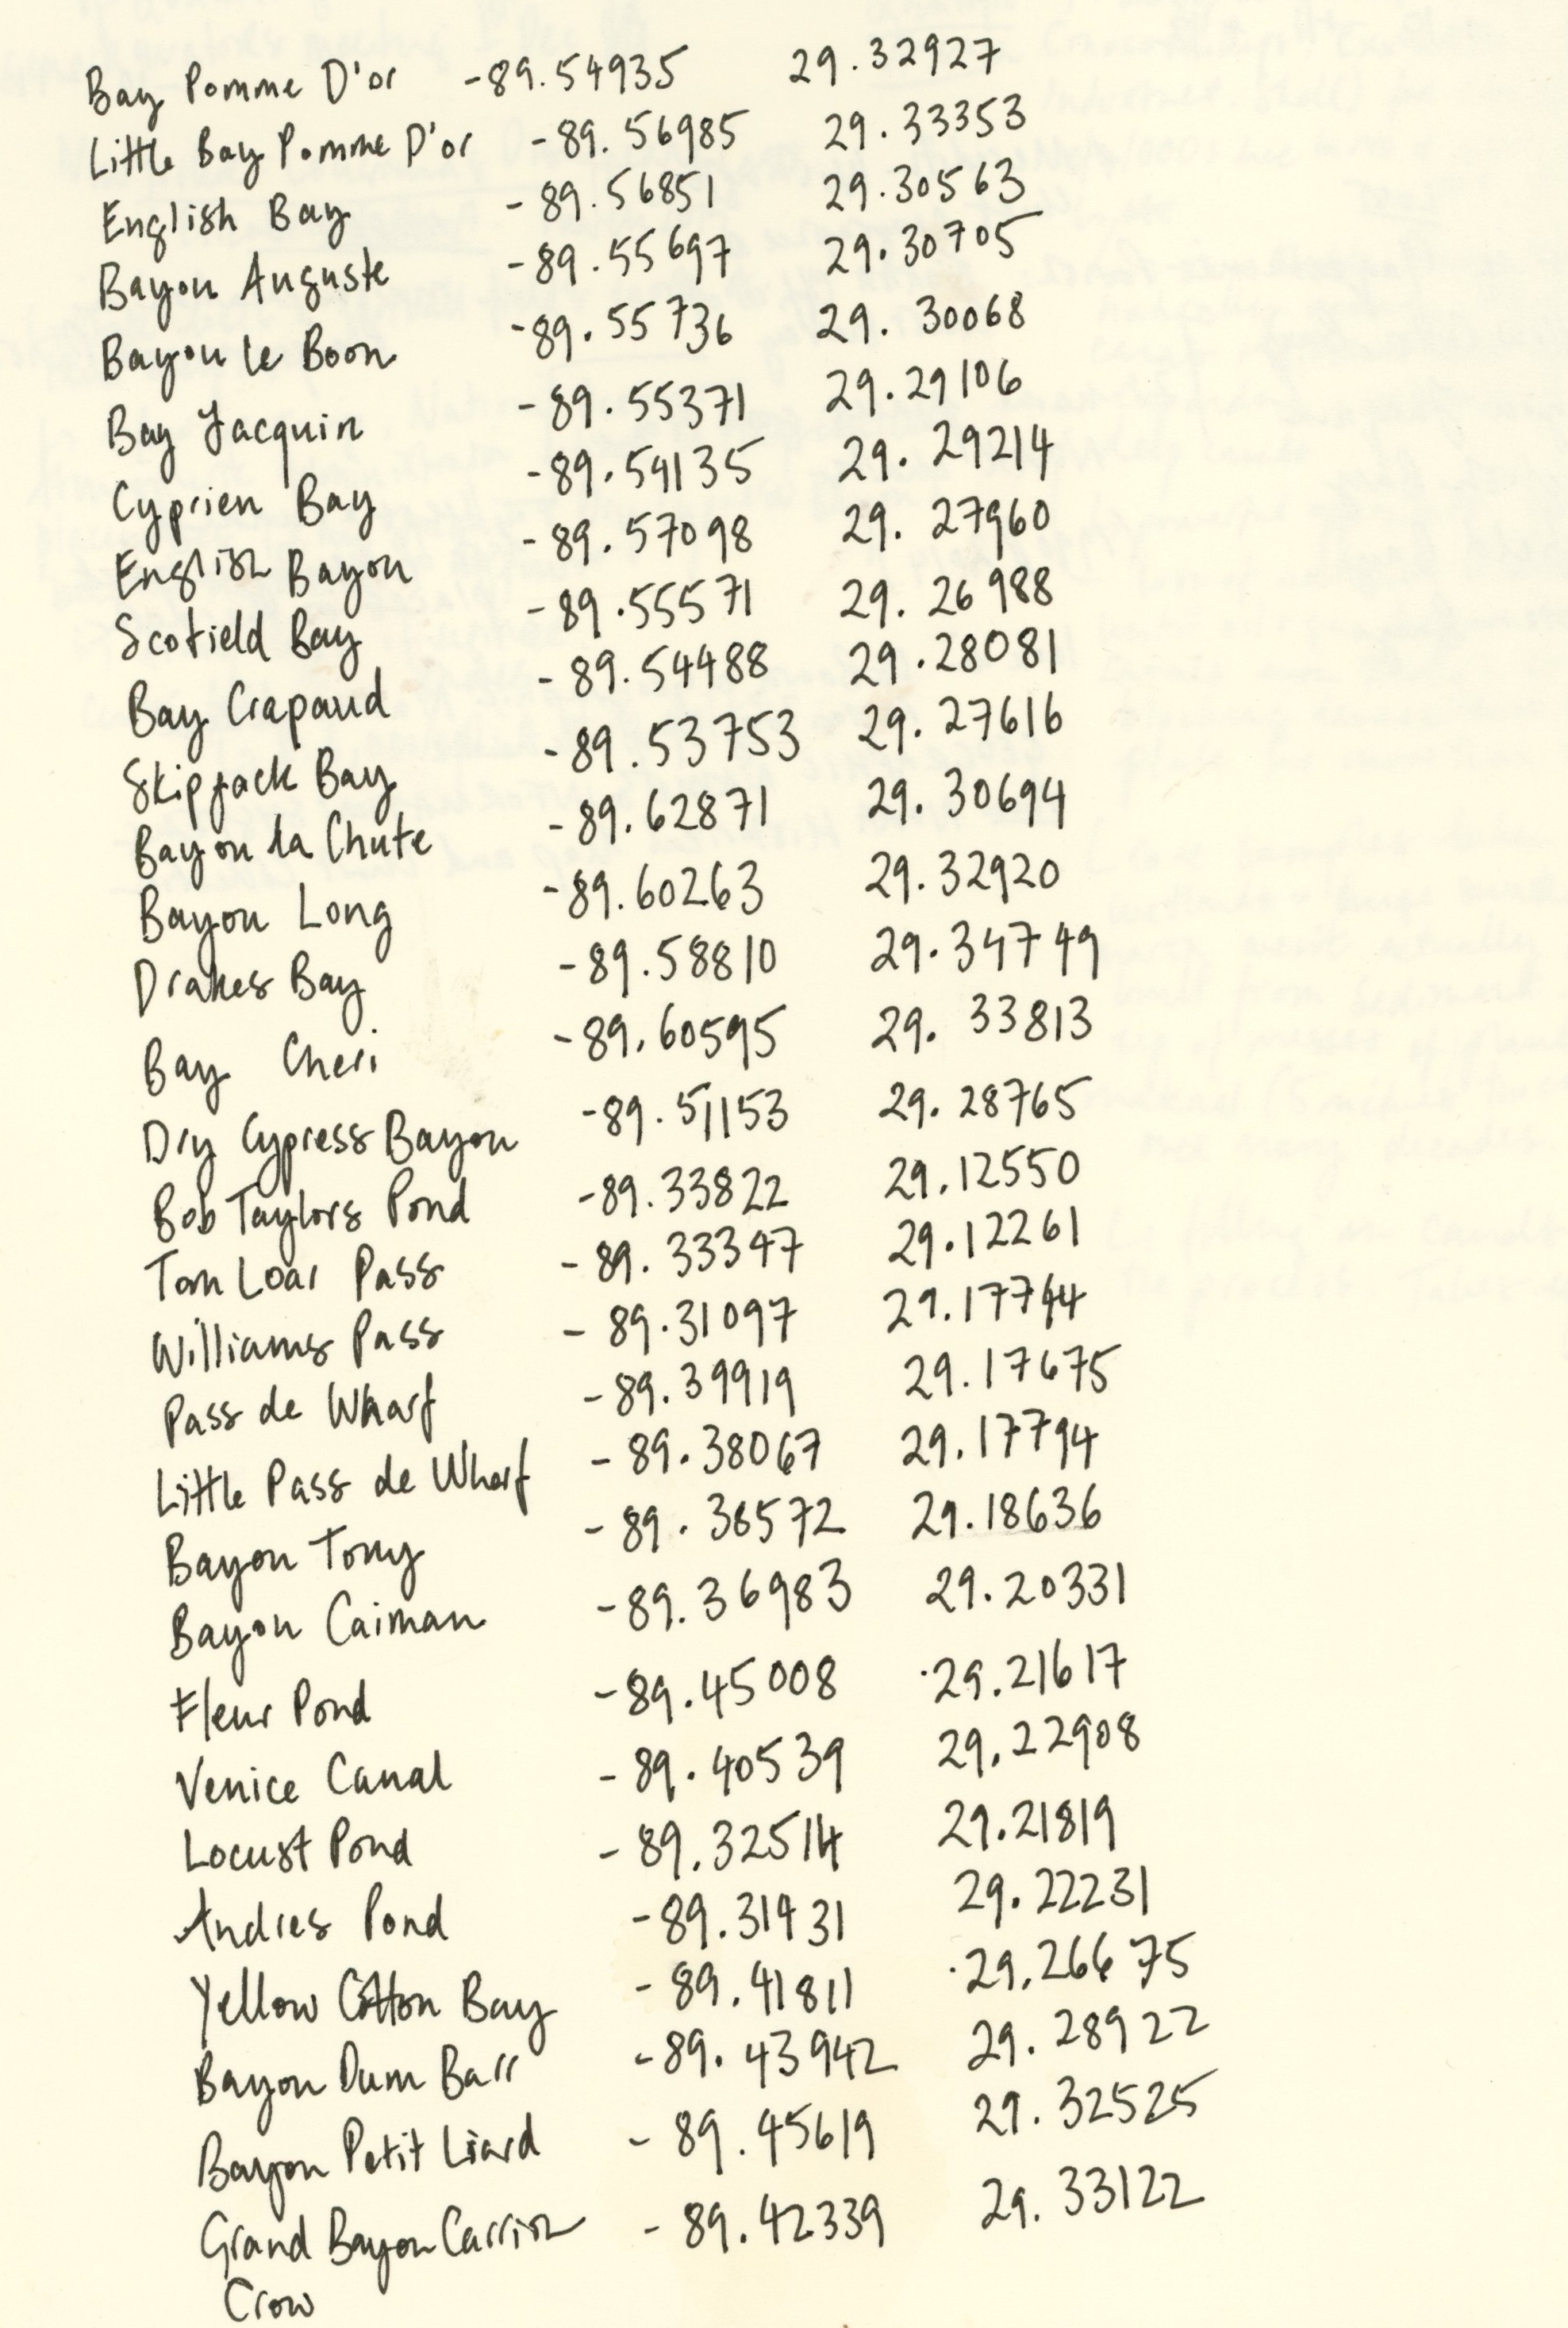 Bay Pomme D'or -89.54935 29.32927
Little Bay Pomme D'or -89.56985 29.33353
English Bay -89.56851 29.30563
Bayou Auguste -89.55697 29.30705
Bayou le Boon -89.55736 29.30068
Bay Jacquin -89.55371 29.29106
Cyprien Bay -89.54135 29.29214
English Bayou -89.57098 29.27960
Scofield Bay -89.55571 29.26988
Bay Crapaud -89.54488 29.28081
Skipjack Bay -89.53753 29.27616
Bayou la Chute -89.62871 29.30694
Bayou Long -89.60263 29.32920
Drakes Bay -89.58810 29.34749
Bay Cheri -89.60595 29.33813
Dry Cypress Bayou -89.51153 29.28765
Bob Taylors Pond -89.33822 29.12550
Tom Loar Pass -89.33347 29.12261
Williams Pass -89.31097 29.17744
Pass de Wharf -89.39919 29.17675
Little Pass de Wharf -89.38067 29.17794
Bayou Tony -89.38572 29.18636
Bayou Caiman -89.36983 29.20331
Fleur Pond -89.45008 29.21617
Venice Canal -89.40539 29.22908
Locust Pond -89.32514 29.21819
Andres Pond -89.31431 29.22231
Yellow Cotton Bay -89.41811 29.26675
Bayou Dum Barr -89.43942 29.28922
Bayou Petit Liard -89.45619 29.32525
Grand Bayou Carrion -89.42339 29.33122
Crow